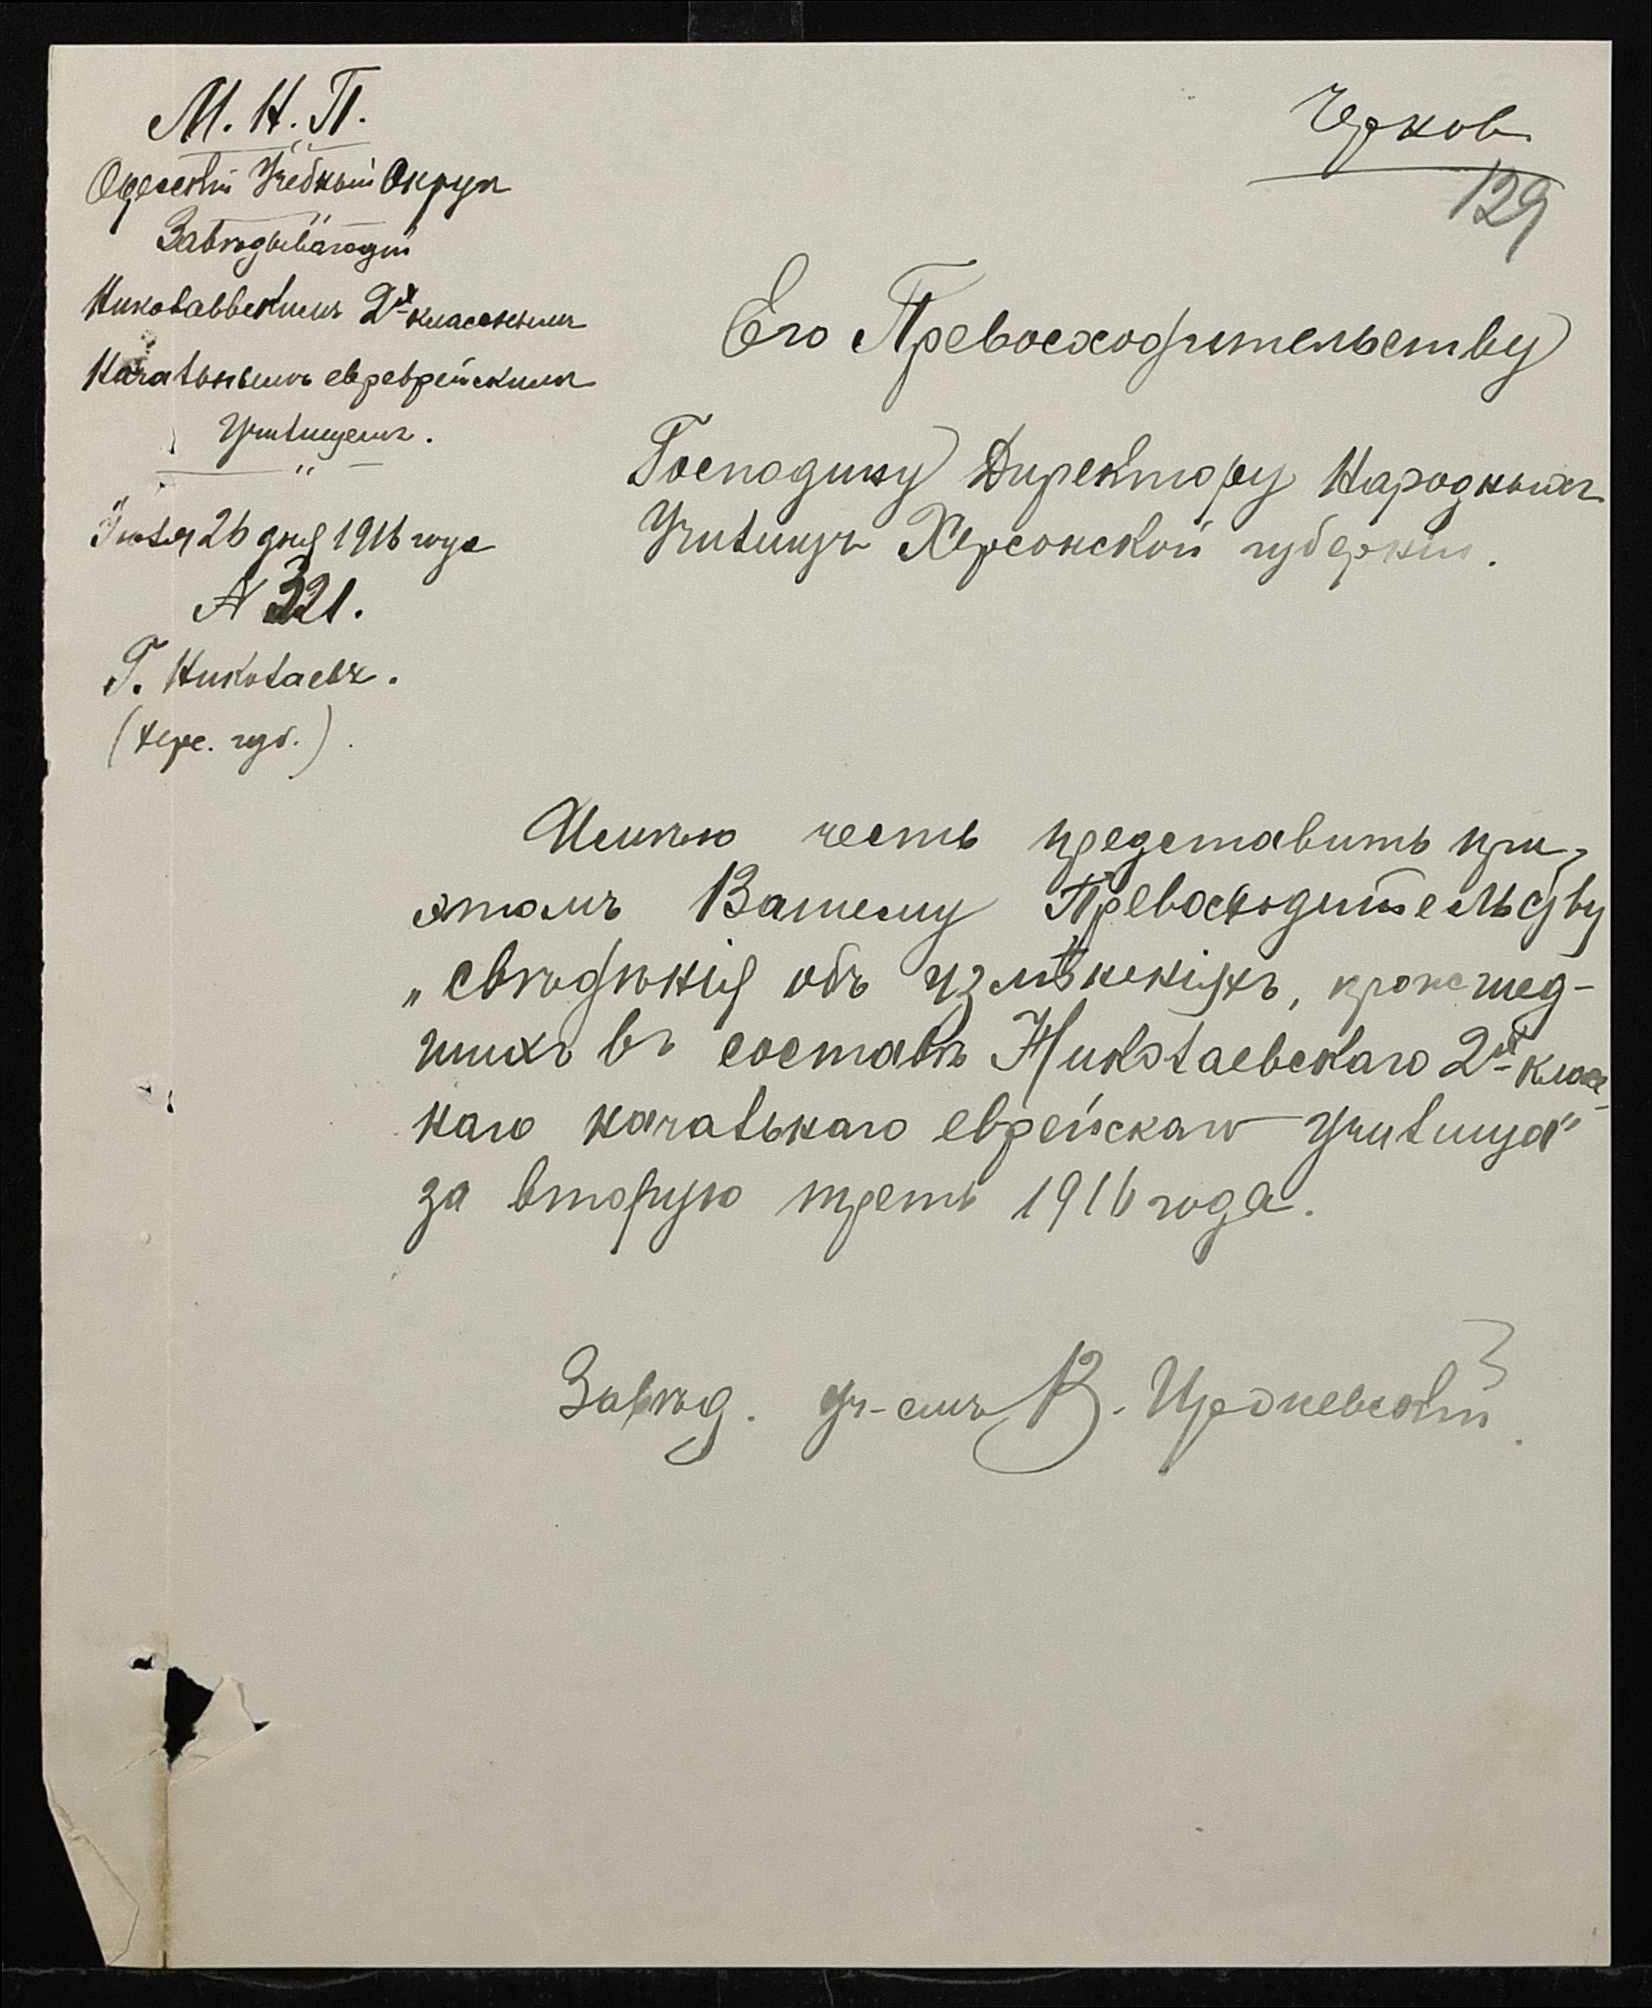 М. Н. П.
Одесскій Учебный Округъ
Завѣдывающій
Николаевскимъ 2х классными
Начальнымъ евревреискимъ
Училищемъ.
Іюля 26 дня 1916 года
№ 321.
Г. Николаевъ.
(Херс. губ.).
129
Его Превосходительству
Господину Директору Народныхъ
Училищъ Херсонской губерніи.
Имѣю честь представить при
этомъ Вашему Превосходительству
„свѣдѣнія объ измѣненіяхъ, происшед-
шихъ въ составѣ Николаевскаго 2х класс-
наго начальнаго еврейскаго училища"
за вторую треть 1916 года.
Завѣд. уч-емъ В.